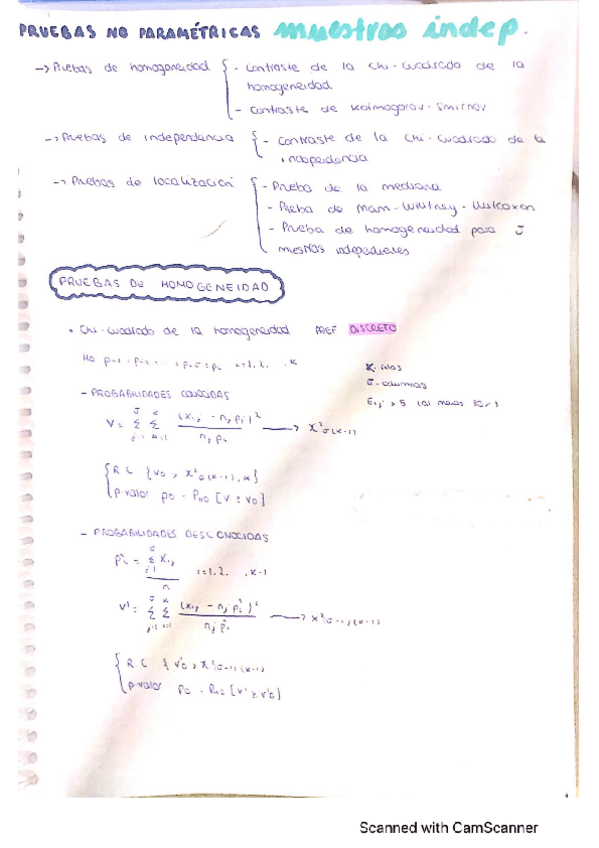 PRUEBAS NO PARAMÉTRICAS muestras indep.
-> Pruebas de homogeneidad { - Contraste de la chi-cuadrado de la
homogeneidad
- Contraste de Kolmogorov-Smirnov
-> Pruebas de independencia { - Contraste de la chi-cuadrado de la
independencia
-> Pruebas de localización { - Prueba de la mediana
- Prueba de Mann-Whitney-Wilcoxon
- Prueba de homogeneidad para J
muestras independientes
PRUEBAS DE HOMOGENEIDAD
• Chi-cuadrado de la homogeneidad PREF DISCRETO
K - filas
J - columnas
Ei,j > 5
- PROBABILIDADES CONOCIDAS
V = Σ Σ (xi,j - nj pi)² / nj pi -> X² J(K-1)
{ R C {V0 > X² J(K-1), α}
p-valor p0 = PH0 [V ≥ V0]
- PROBABILIDADES DESCONOCIDAS
p̂i = Σ Xi,j / n i=1,2,...,K-1
V' = Σ Σ (xi,j - nj p̂i)² / nj p̂i -> X² (J-1)(K-1)
{ R C { V'0 > X² (J-1)(K-1)
p-valor p0 = PH0 [V' ≥ V'0]
Scanned with CamScanner